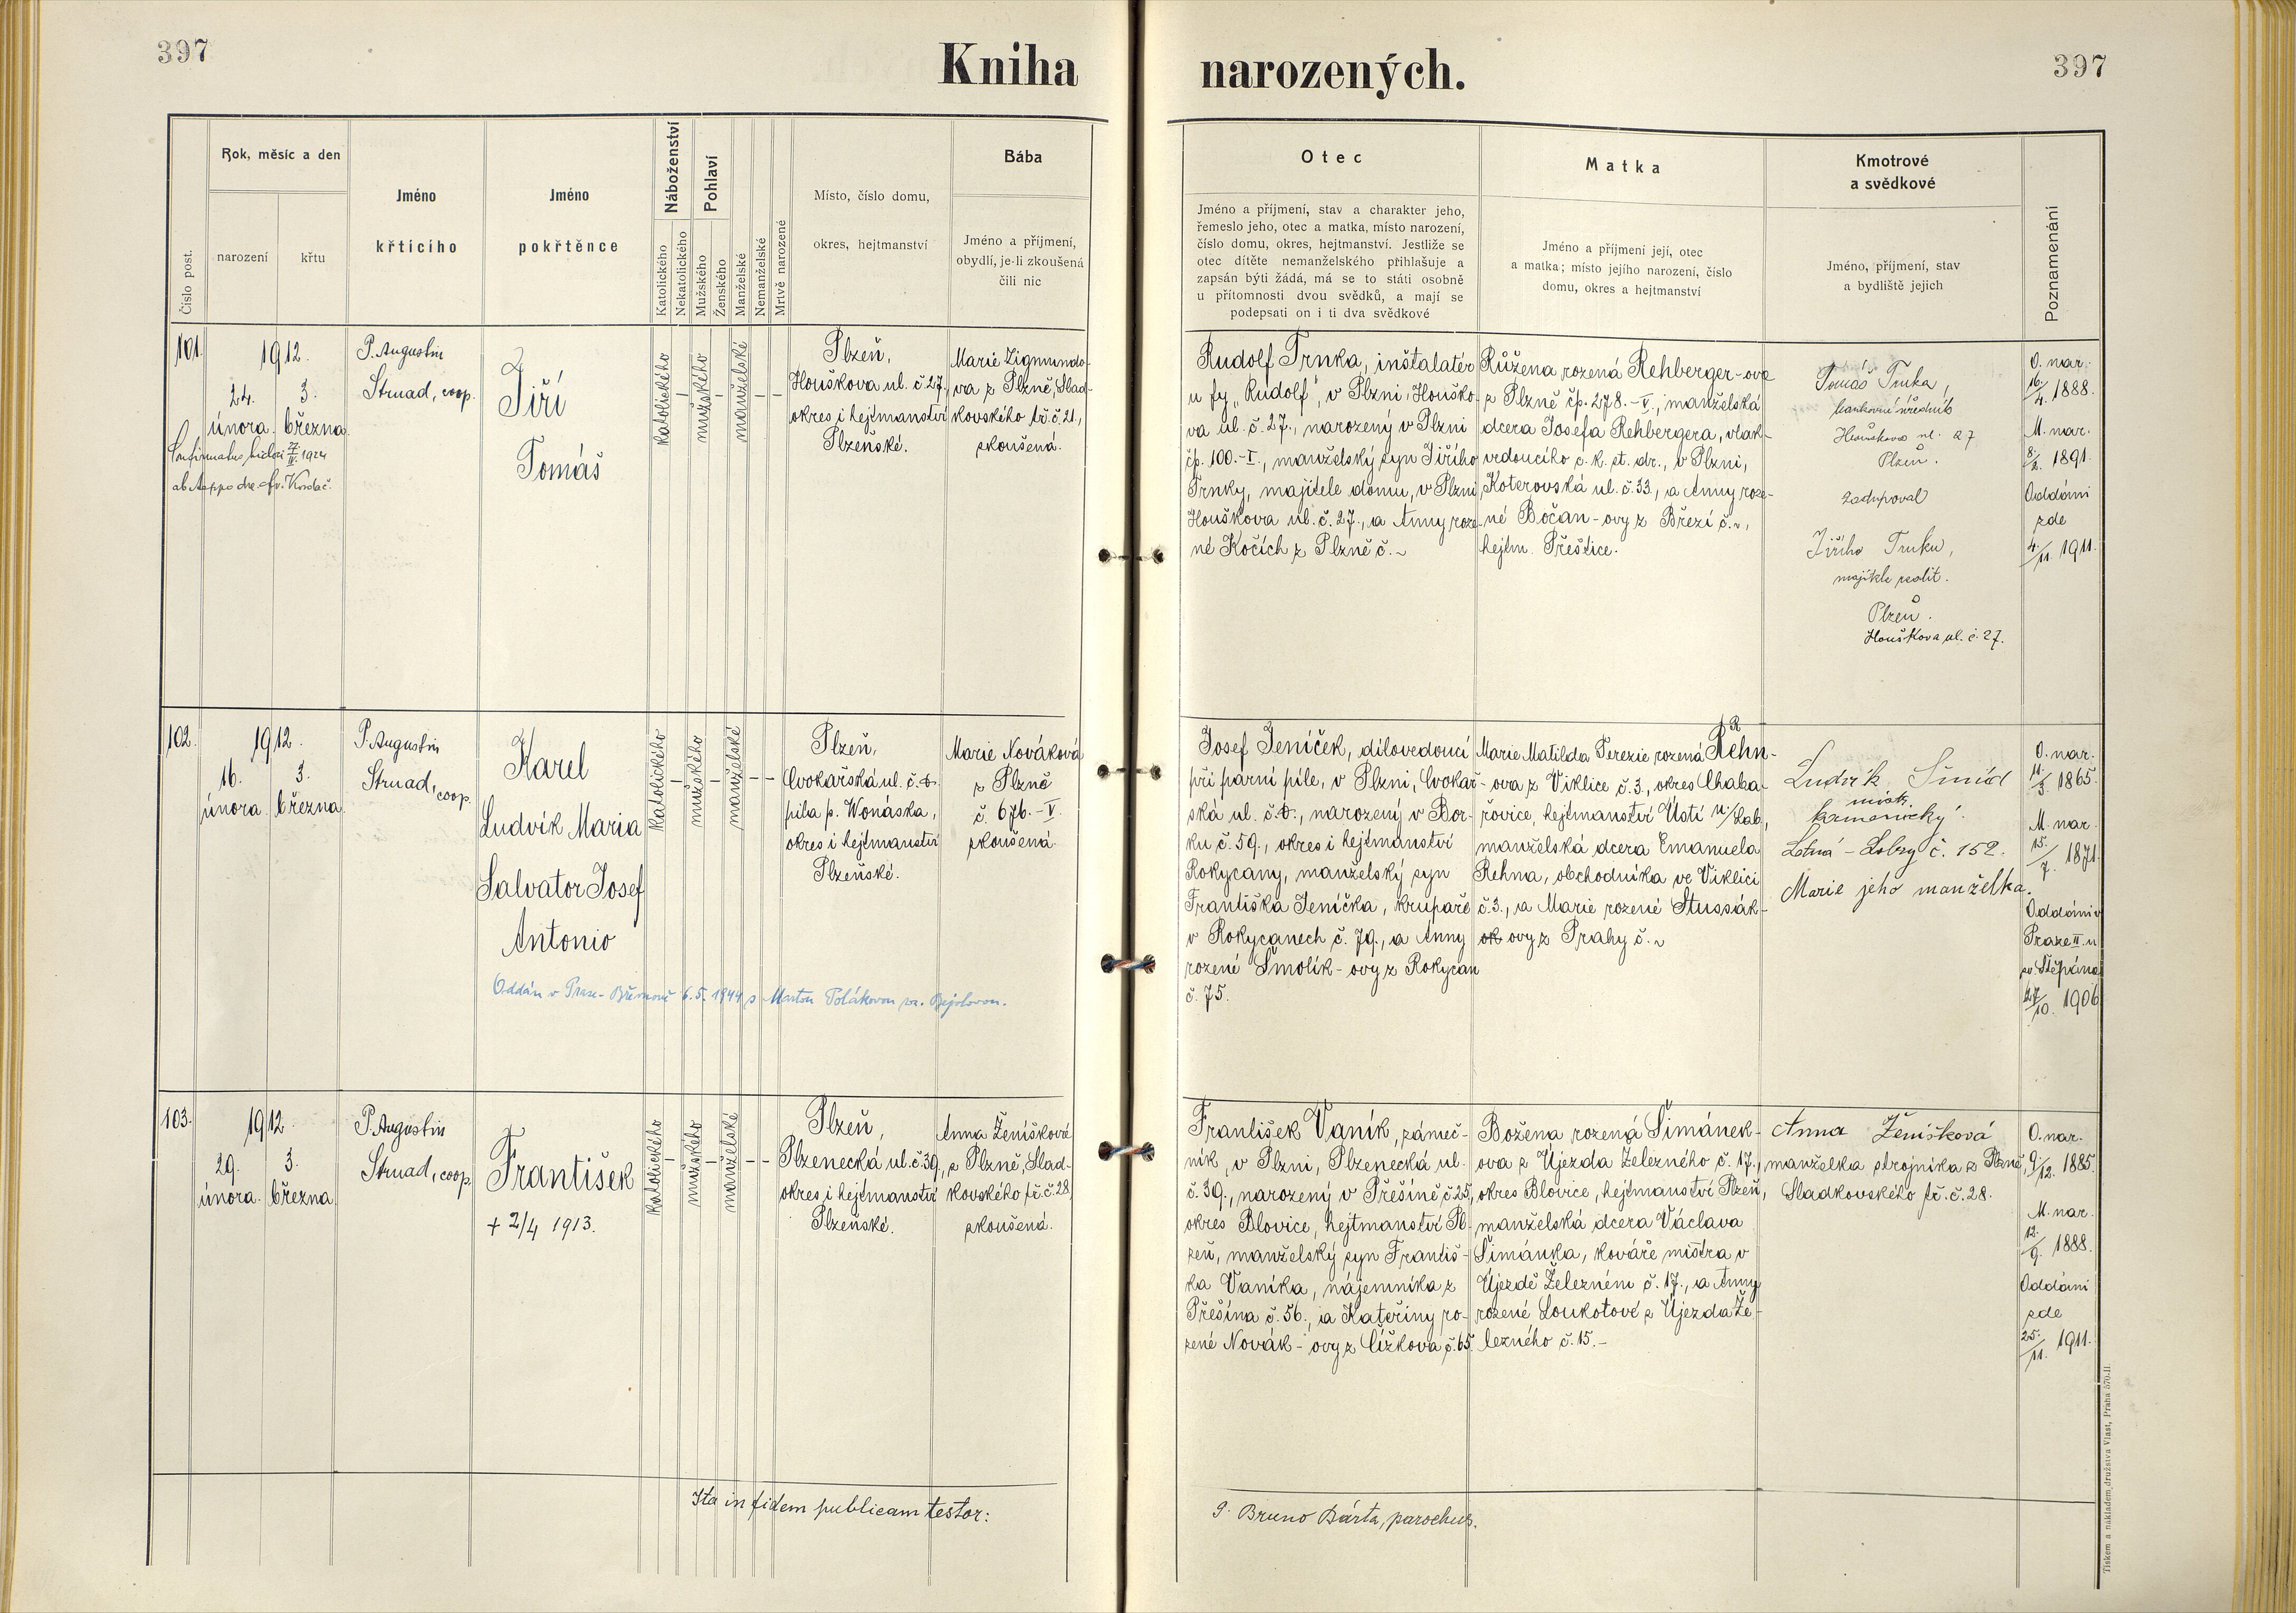 397
Kniha narozených.
397
Číslo post.
Rok, měsíc a den
narození
křtu
Jméno
křtícího
Jméno
pokřtěnce
Náboženství
Katolického
Nekatolického
Pohlaví
Mužského
Ženského
Manželské
Nemanželské
Mrtvě narozené
Místo, číslo domu,
okres, hejtmanství
Bába
Jméno a příjmení,
obydlí, je-li zkoušená
čili nic
Otec
Jméno a příjmení, stav a charakter jeho,
řemeslo jeho, otec a matka, místo narození,
číslo domu, okres, hejtmanství. Jestliže se
otec dítěte nemanželského přihlašuje a
zapsán býti žádá, má se to státi osobně
u přítomnosti dvou svědků, a mají se
podepsati on i ti dva svědkové
Matka
Jméno a příjmení její, otec
a matka; místo jejího narození, číslo
domu, okres a hejtmanství
Kmotrové
a svědkové
Jméno, příjmení, stav
a bydliště jejich
Poznamenání
101.
1912.
24. 3.
února. března.
Confirmatus
1924
ab Aeppo
P. Augustin
Strnad, coop.
Jiří
Tomáš
katolického
–
mužského
–
manželské
–
–
Plzeň,
Houškova ul. č. 27.,
okres i hejtmanství
Plzeňské.
Marie Zigmundo-
va z Plzně, Slad-
kovského tř. č. 21.,
zkoušená.
Rudolf Trnka, inštalatér
u fy „Rudolf", v Plzni, Houško-
va ul. č. 27., narozený v Plzni
čp. 100.-I., manželský syn Jiřího
Trnky, majitele domu, v Plzni,
Houškova ul. č. 27., a Anny roze-
né Kočích z Plzně č. ~
Růžena rozená Rehberger-ova
z Plzně čp. 278.-V., manželská
dcera Josefa Rehbergera, vlak-
vedoucího c. k. st. dr., v Plzni,
Koterovská ul. č. 33., a Anny roze-
né Bočan-ovy z Březí č. ~,
hejtm. Přeštice.
Tomáš Trnka,
bankovní úředník
Houškova ul. 27
Plzeň.
zastupoval
Jiřího Trnku,
majitele realit.
Plzeň.
Houškova ul. č. 27.
O. nar.
16./4. 1888.
M. nar.
8./2. 1891.
Oddáni
zde
4./11. 1911.
102.
1912.
16. 3.
února. března.
P. Augustin
Strnad, coop.
Karel
Ludvík Maria
Salvator Josef
Antonio
Oddán v Praze-Břevnově 6.5. 1944 s Martou Polákovou
katolického
–
mužského
–
manželské
–
–
Plzeň,
Cvokařská ul. č.
pila p. Wonáska,
okres i hejtmanství
Plzeňské.
Marie Nováková
z Plzně
č. 676.-V.
zkoušená.
Josef Jeníček, dílovedoucí
při parní pile, v Plzni, Cvokař-
ská ul. č. , narozený v Bor-
ku č. 59., okres i hejtmanství
Rokycany, manželský syn
Františka Jeníčka, krupaře
v Rokycanech č. 79., a Anny
rozené Šmolík-ovy z Rokycan
č. 75.
Marie Matilda Terezie rozená Rehn-
ova z Viklice č. 3., okres Chaba-
řovice, hejtmanství Ústí n/Lab.,
manželská dcera Emanuela
Rehna, obchodníka ve Viklici
č. 3., a Marie rozené Stussák-
ovy z Prahy č. ~
Ludvík Šmíd
mistr
kamenický.
Letná-Lobzy č. 152.
Marie jeho manželka.
O. nar.
11./3. 1865.
M. nar.
15./7. 1871.
Oddáni v
Praze II. u
sv. Štěpána
27./10. 1906
103.
1912.
29. 3.
února. března.
P. Augustin
Strnad, coop.
František
+ 2/4 1913.
katolického
–
mužského
–
manželské
–
–
Plzeň,
Plzenecká ul. č. 39.,
okres i hejtmanství
Plzeňské.
Anna Ženíšková
z Plzně, Slad-
kovského tř. č. 28.
zkoušená.
František Vaník, zámeč-
ník, v Plzni, Plzenecká ul.
č. 39., narozený v Přešíně č. 25.,
okres Blovice, hejtmanství Pl-
zeň, manželský syn Františ-
ka Vaníka, nájemníka z
Přešína č. 56., a Kateřiny ro-
zené Novák-ovy z Čížkova č. 65.
Božena rozená Šimánek-
ova z Újezda Železného č. 17.,
okres Blovice, hejtmanství Plzeň,
manželská dcera Václava
Šimánka, kováře mistra v
Újezdě Železném č. 17., a Anny
rozené Loukotové z Újezda Že-
lezného č. 15.-
Anna Ženíšková
manželka strojníka z Plzně,
Sladkovského tř. č. 28.
O. nar.
9./12. 1885.
M. nar.
12./9. 1888.
Oddáni
zde
25./11. 1911.
Ita in fidem publicam testor:
P. Bruno Bárta, parochus.
Tiskem a nákladem družstva Vlast, Praha 570-II.